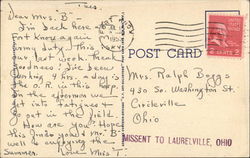 Tues.
Dear Mrs. B.
I'm back here at
Fort Knox again on
Army duty. This is
our last week. Thank
goodness! I've been
working 4 hrs. a day in
the O.R. in this
In the afternoon we
get into fatigues &
go out in the field.
How are you? Hope
this finds you & Mr. "B"
well & enjoying the
Summer. Love Miss T.
POST CARD
Mrs. Ralph Beggs
430 So. Washington St.
Circleville
Ohio
MISSENT TO LAURELVILLE, OHIO